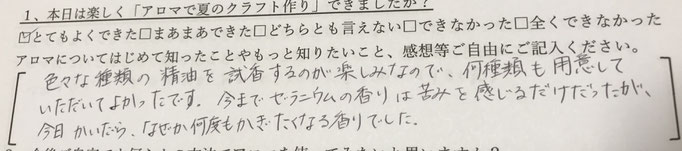 1、本日は楽しく「アロマで夏のクラフト作り」できましたか？
☑とてもよくできた□まあまあできた□どちらとも言えない□できなかった□全くできなかった
アロマについてはじめて知ったことやもっと知りたいこと、感想等ご自由にご記入ください。
色々な種類の精油を試香するのが楽しみなので、何種類も用意して
いただいてよかったです。今までゼラニウムの香りは苦みを感じるだけだったが、
今日かいだら、なぜか何度もかぎたくなる香りでした。